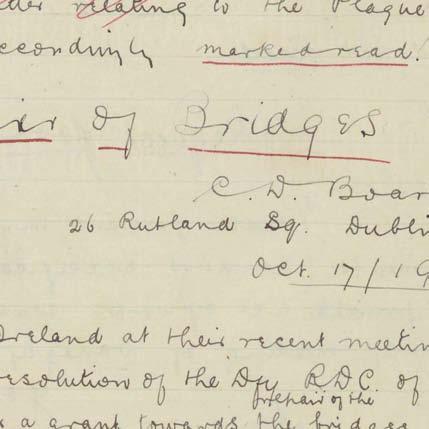 der relating to the Plague
ccordingly marked read.
ir of Bridges
C. D. Boar
26 Rutland Sq. Dubli
Oct. 17/19
Ireland at their recent meetin
esolution of the R.D.C. of
for repair of the
a grant towards the bridges